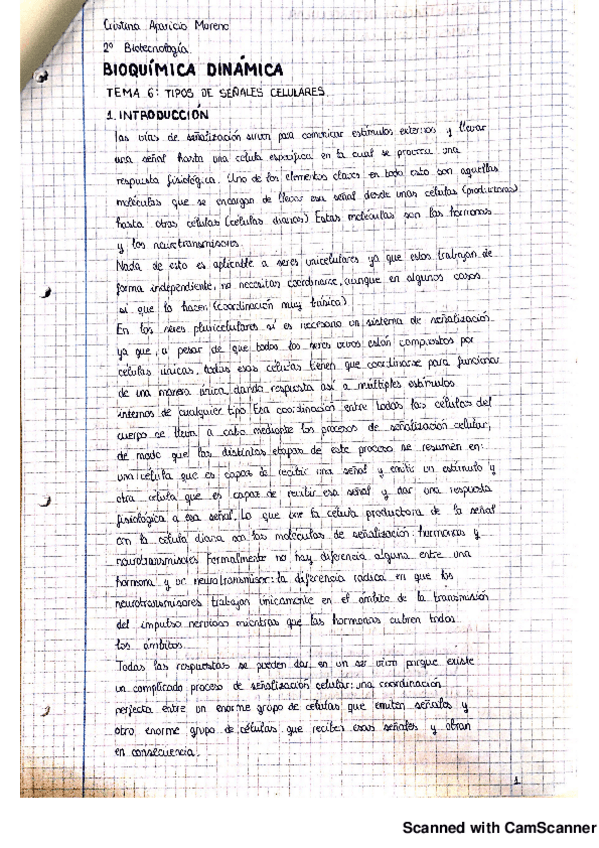 Cristina Aparicio Moreno
2º Biotecnología
BIOQUÍMICA DINÁMICA
TEMA 6: TIPOS DE SEÑALES CELULARES
1. INTRODUCCIÓN
Las vías de señalización sirven para comunicar estímulos externos y llevar
una señal hasta una célula específica en la cual se procesa una
respuesta fisiológica. Uno de los elementos claves en todo esto son aquellas
moléculas que se encargan de llevar esa señal desde unas células (productoras)
hasta otras células (células dianas) Estas moléculas son las hormonas
y los neurotransmisores.
Nada de esto es aplicable a seres unicelulares ya que estos trabajan de
forma independiente, no necesitan coordinarse, aunque en algunos casos
sí que lo hacen (coordinación muy básica)
En los seres pluricelulares sí es necesario un sistema de señalización
ya que, a pesar de que todos los seres vivos están compuestos por
células únicas, todas esas células tienen que coordinarse para funcionar
de una manera única, dando respuesta así a múltiples estímulos
internos de cualquier tipo Esa coordinación entre todas las células del
cuerpo se lleva a cabo mediante los procesos de señalización celular,
de modo que las distintas etapas de este proceso se resumen en:
una célula que es capaz de recibir una señal y emitir un estímulo y
otra célula que es capaz de recibir esa señal y dar una respuesta
fisiológica a esa señal. Lo que une la célula productora de la señal
con la célula diana son las moléculas de señalización: hormonas y
neurotransmisores Formalmente no hay diferencia alguna entre una
hormona y un neurotransmisor: la diferencia radica en que los
neurotransmisores trabajan únicamente en el ámbito de la transmisión
del impulso nervioso mientras que las hormonas cubren todos
los ámbitos.
Todas las respuestas se pueden dar en un ser vivo porque existe
un complicado proceso de señalización celular: una coordinación
perfecta entre un enorme grupo de células que emiten señales y
otro enorme grupo de células que reciben esas señales y obran
en consecuencia.
1
Scanned with CamScanner